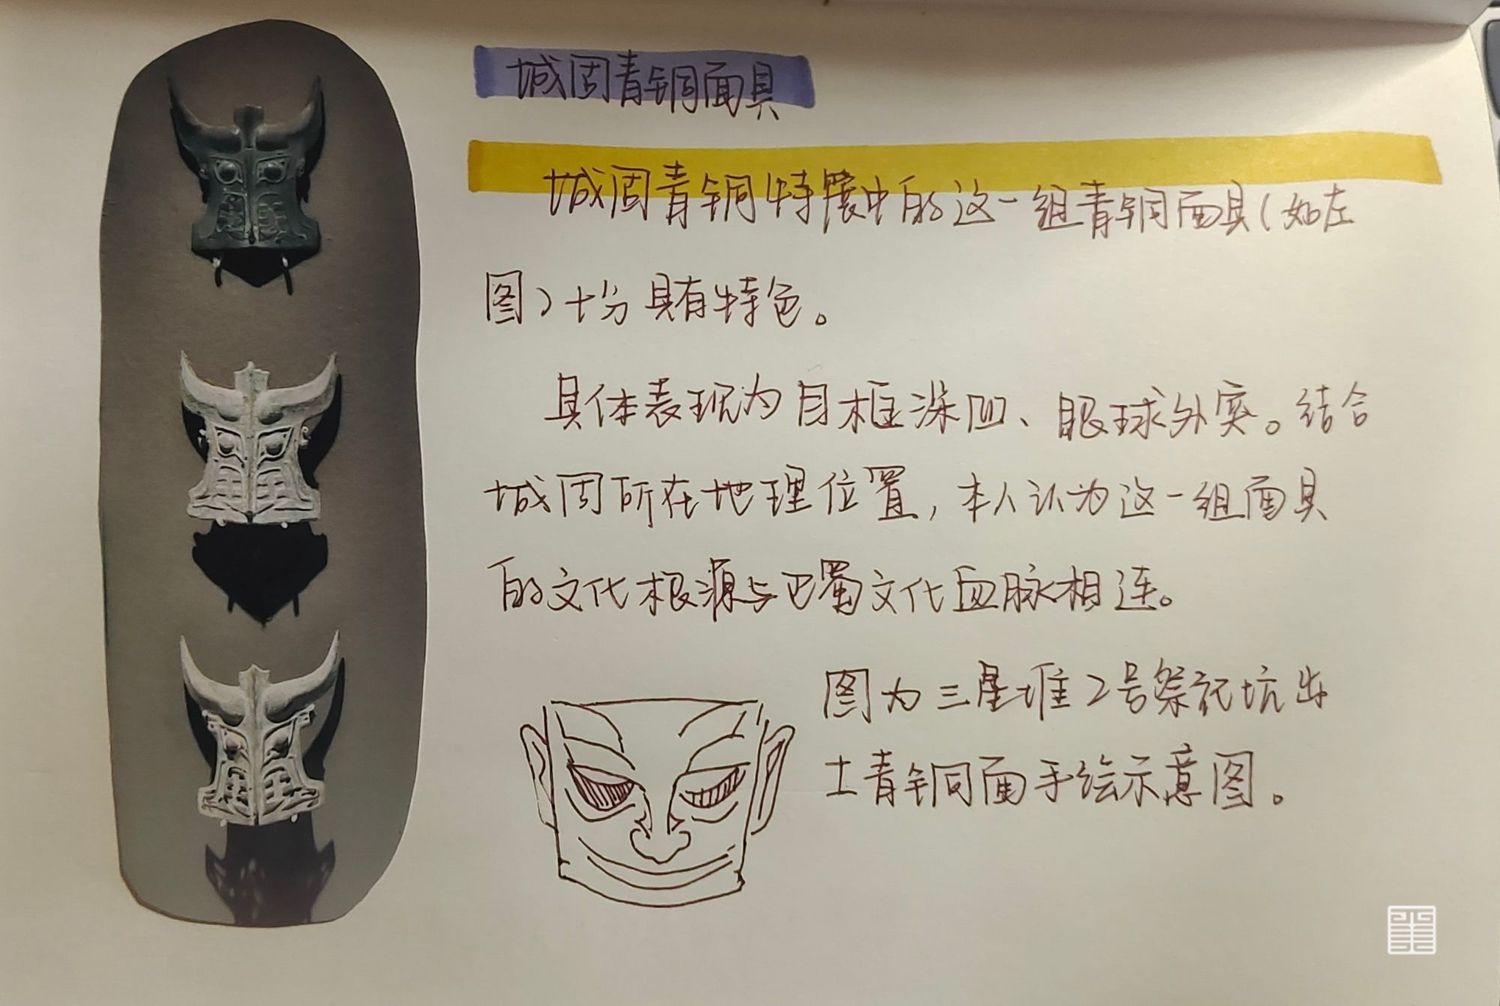 城固青铜面具
城固青铜特展中的这一组青铜面具(如左
图)十分具有特色。
具体表现为目框深凹、眼球外突。结合
城固所在地理位置,本人认为这一组面具
的文化根源与巴蜀文化血脉相连。
图为三星堆2号祭祀坑出
土青铜面手绘示意图。